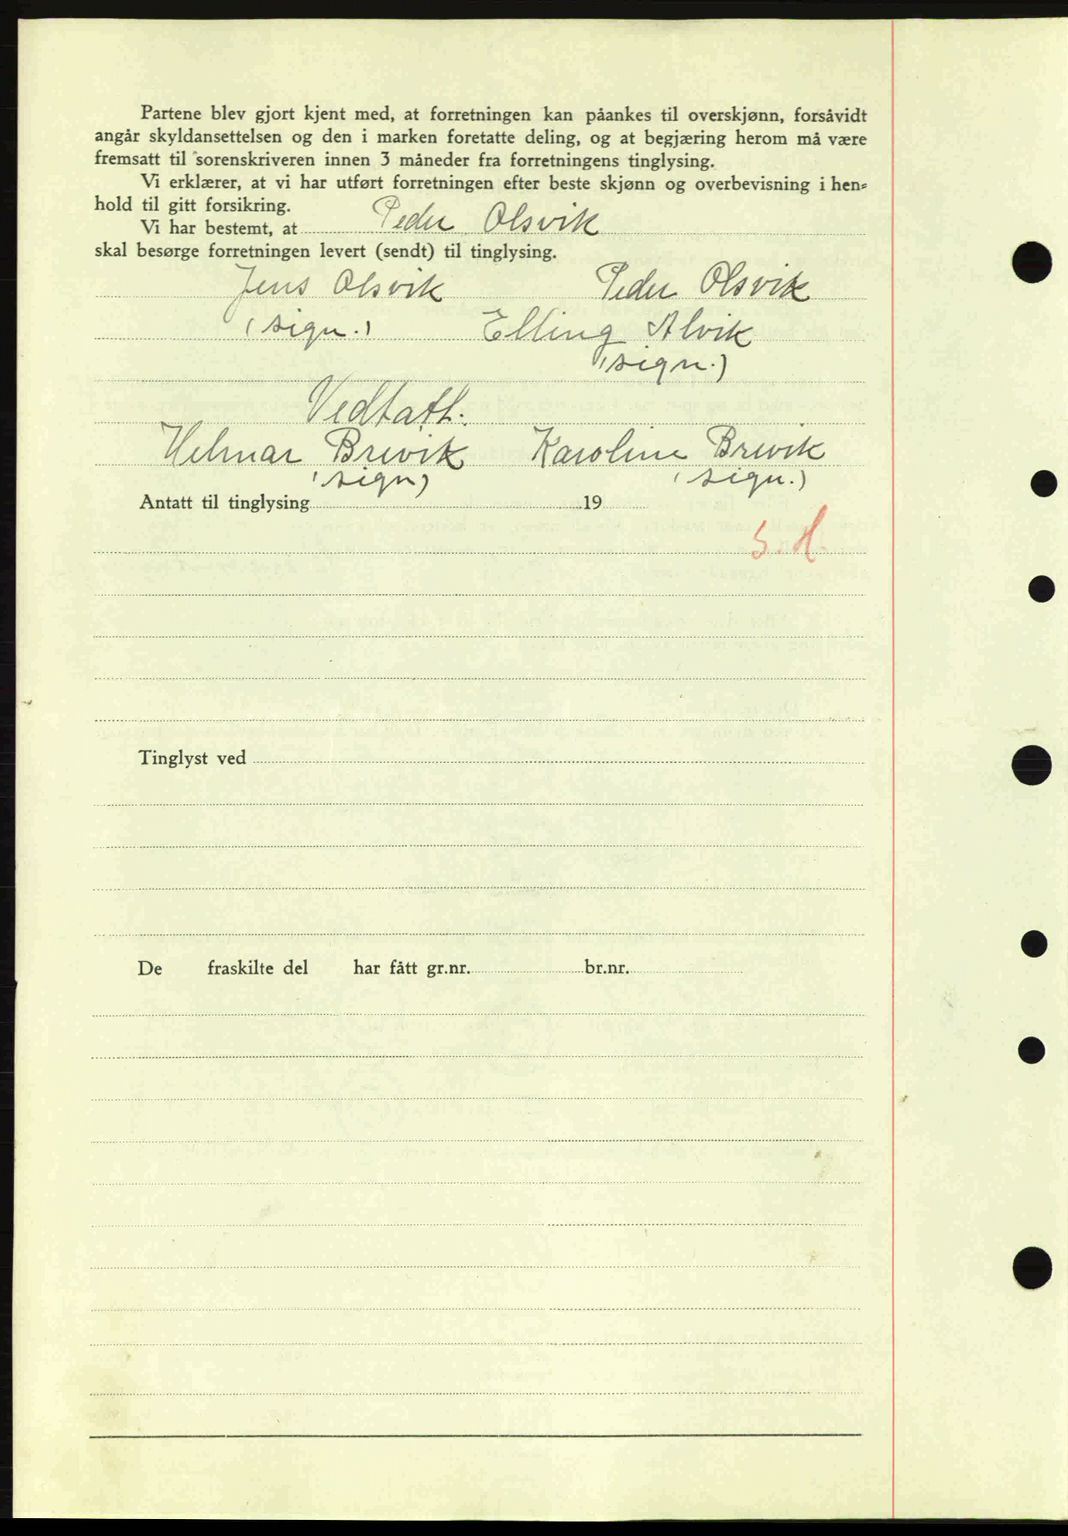 Partene blev gjort kjent med, at forretningen kan påankes til overskjønn, forsåvidt
angår skyldansettelsen og den i marken foretatte deling, og at begjæring herom må være
fremsatt til sorenskriveren innen 3 måneder fra forretningens tinglysing.
Vi erklærer, at vi har utført forretningen efter beste skjønn og overbevisning i hen=
hold til gitt forsikring.
Vi har bestemt, at Peder Olsvik
skal besørge forretningen levert (sendt) til tinglysing.
Jens Olsvik Peder Olsvik
(sign.) Elling Alvik
(sign.)
Vedtatt.
Helmar Brevik Karoline Brevik
(sign) (sign.)
Antatt til tinglysing 19
S. H.
Tinglyst ved
De fraskilte del har fått gr.nr. br.nr.